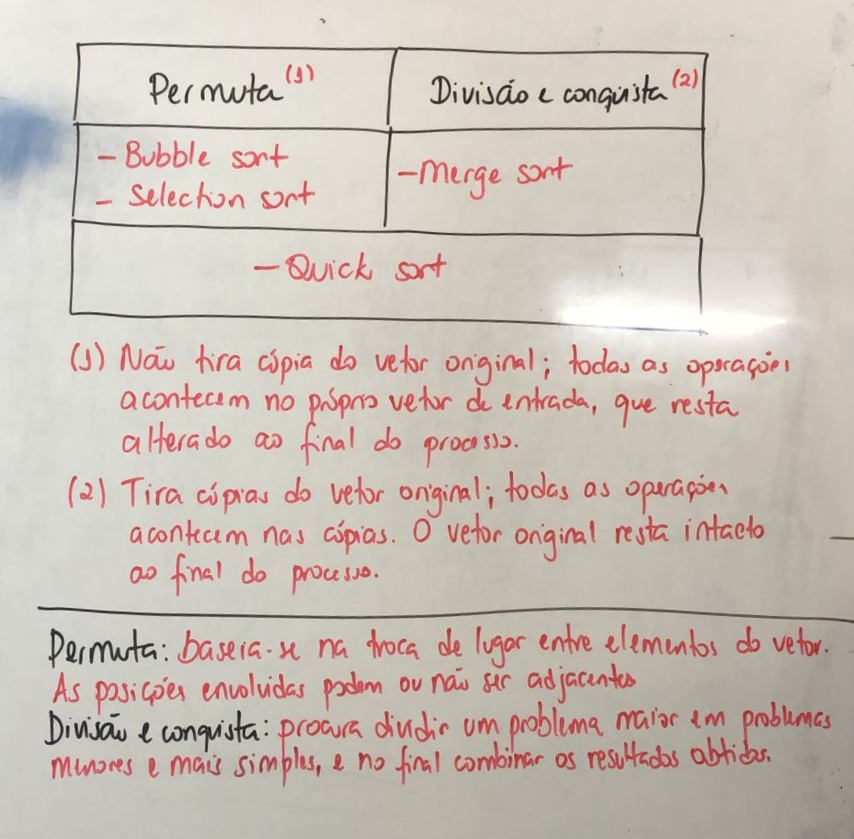 Permuta (1)
Divisão e conquista (2)
- Bubble sort
- Selection sort
- Merge sort
- Quick sort
(1) Não tira cópia do vetor original; todas as operações
acontecem no próprio vetor de entrada, que resta
alterado ao final do processo.
(2) Tira cópias do vetor original; todas as operações
acontecem nas cópias. O vetor original resta intacto
ao final do processo.
Permuta: baseia-se na troca de lugar entre elementos do vetor.
As posições envolvidas podem ou não ser adjacentes
Divisão e conquista: procura dividir um problema maior em problemas
menores e mais simples, e no final combinar os resultados obtidos.